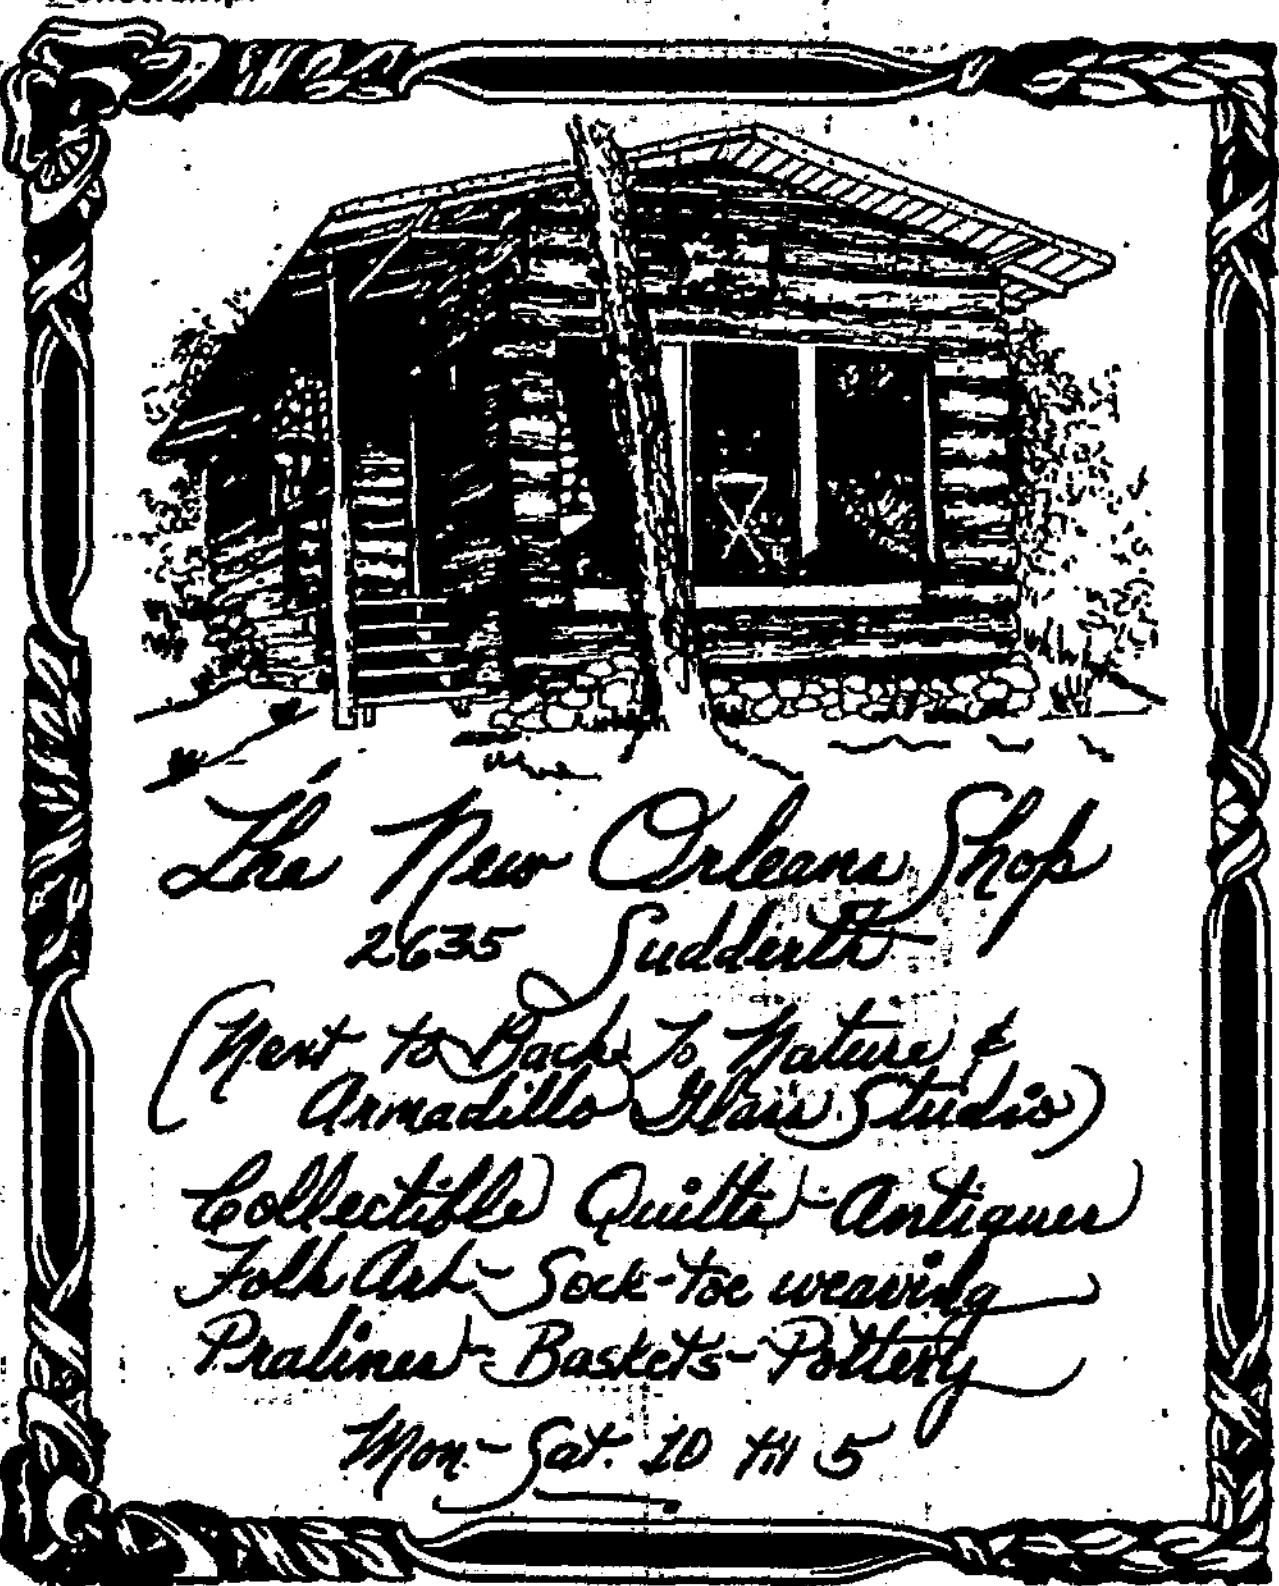 The New Orleans Shop
2635 Sudderth
(Next to Back To Nature &
Armadillo Glass Studio)
Collectible Quilts - Antiques
Folk Art - Sock-toe weaving
Pralines - Baskets - Pottery
Mon - Sat. 10 til 5